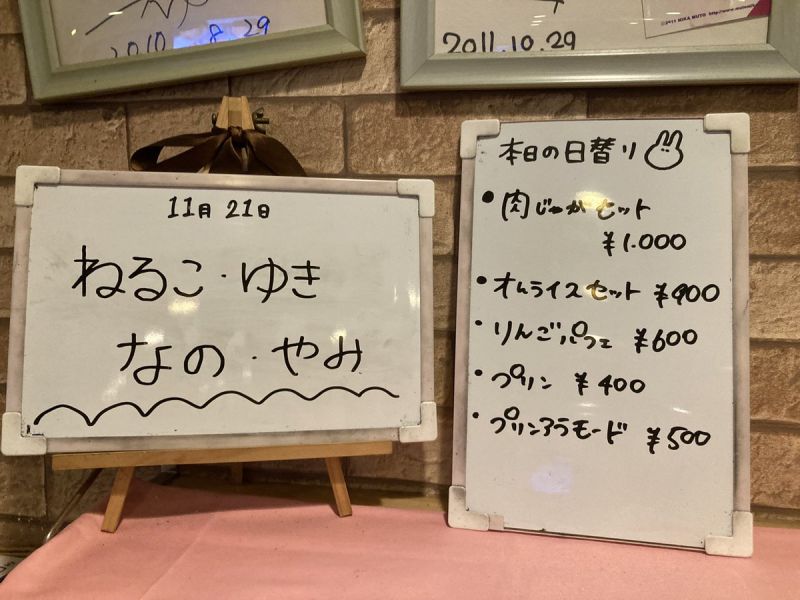 2010.8.29
2011.10.29
©2011 MIKA MUTO
11月 21日
ねるこ・ゆき
なの・やみ
本日の日替り
・肉じゃがセット
¥1.000
・オムライスセット ¥900
・りんごパフェ ¥600
・プリン ¥400
・プリンアラモード ¥500